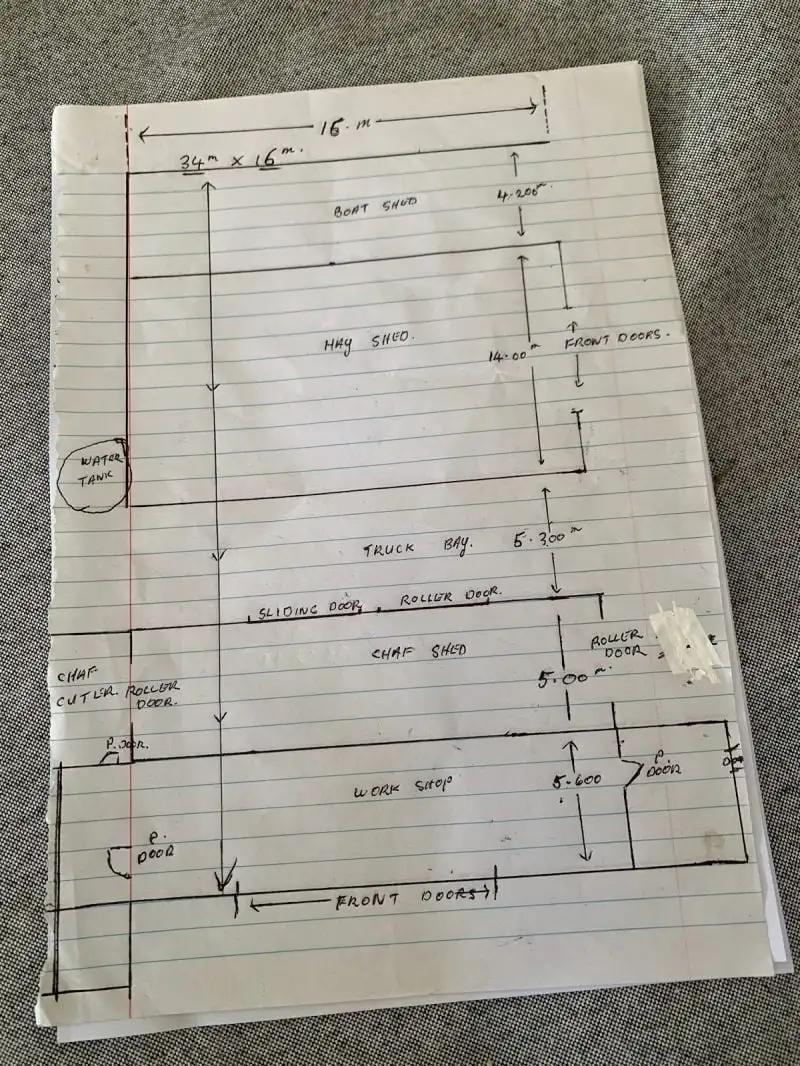 16. m
34m x 16m.
BOAT SHED
4.200m
HAY SHED.
14.00m
FRONT DOORS.
WATER
TANK
TRUCK BAY.
5.300m
SLIDING DOOR
ROLLER DOOR.
CHAF SHED
ROLLER
DOOR
CHAF
CUTLER.
ROLLER
DOOR.
5.00m.
P. DOOR.
WORK SHOP
5.600
P.
DOOR
P.
DOOR
FRONT DOORS